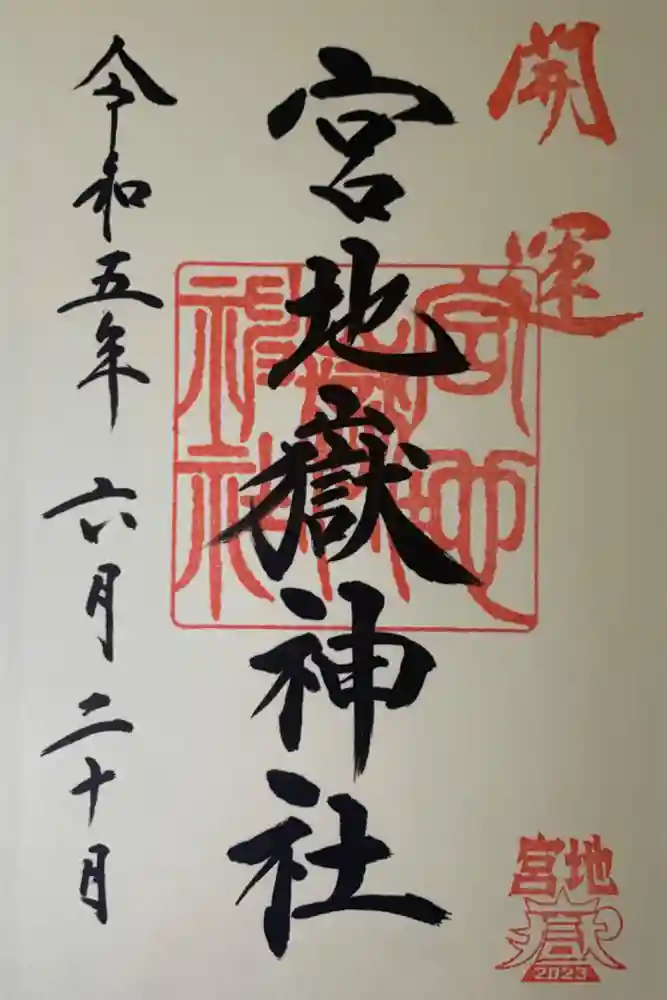 開運
宮地嶽神社
宮地嶽神社
令和五年 六月 二十月
宮地
嶽
2023